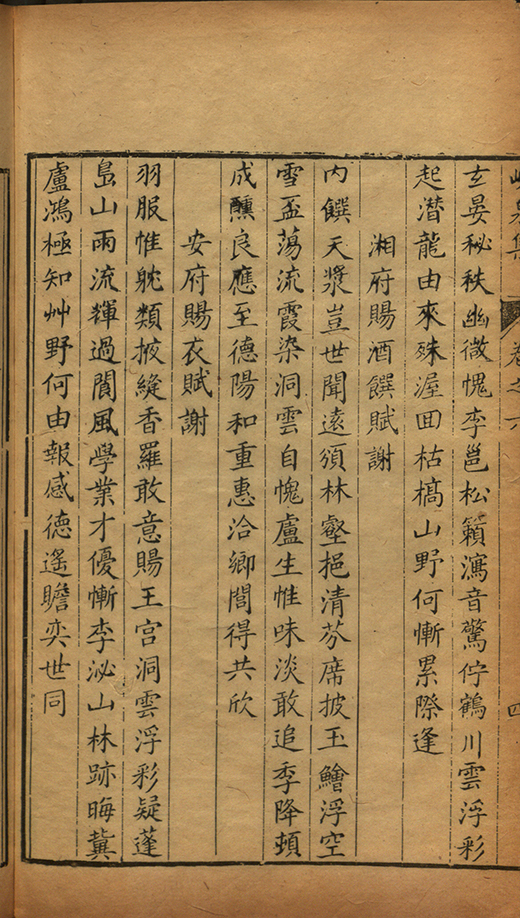 峴泉集 卷之六 四
玄晏秘秩幽微愧李邕松籟瀉音驚佇鶴川雲浮彩
起潛龍由來殊渥囬枯槁山野何慚累際逢
湘府賜酒饌賦謝
内饌天漿豈世聞遠頒林壑挹清芬席披玉鱠浮空
雪盃蕩流霞染洞雲自愧盧生惟味淡敢追季降頓
成醺良應至德陽和重惠洽鄉閭得共欣
安府賜衣賦謝
羽服惟躭類掖縫香羅敢意賜王宫洞雲浮彩疑蓬
島山雨流輝過閬風學業才優慚李泌山林跡晦冀
盧鴻極知艸野何由報感德遙瞻奕世同